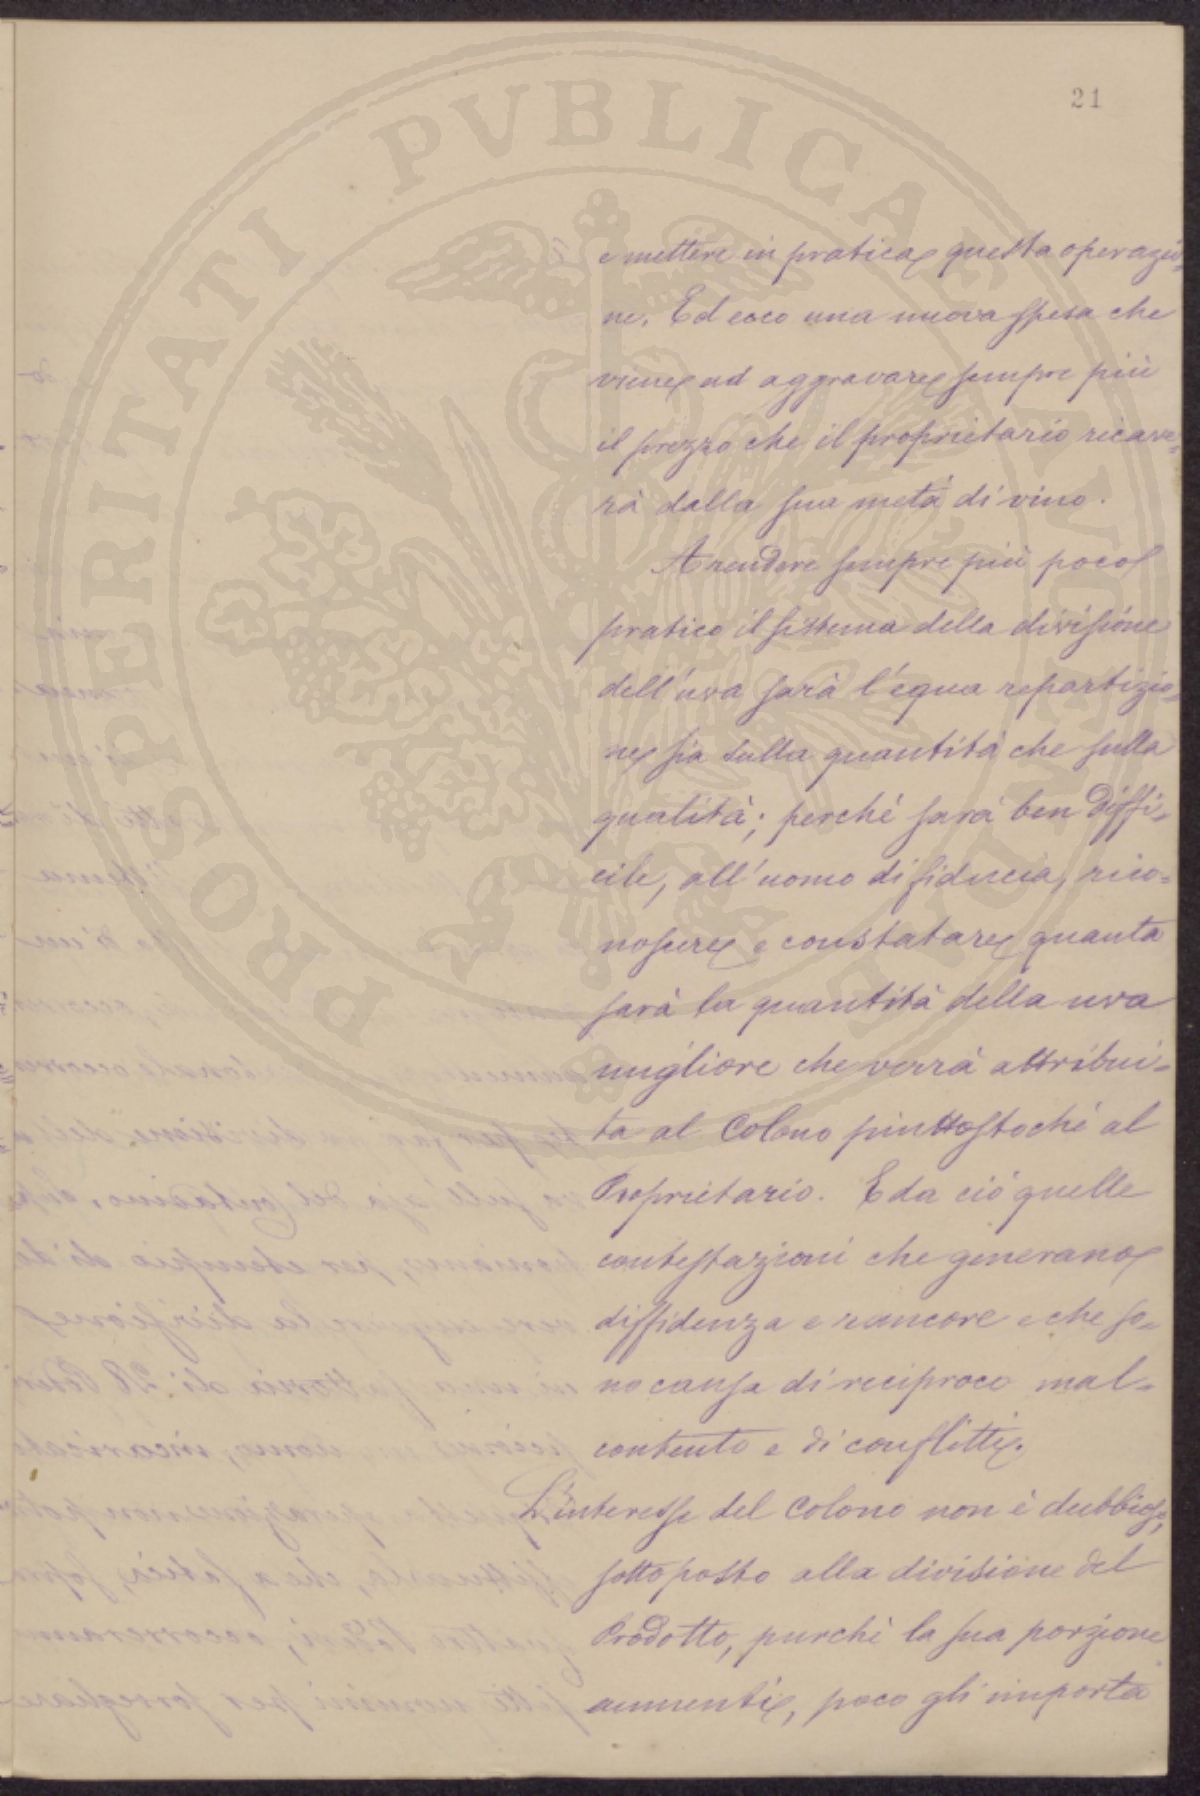 21
PROSPERITATI PVBLICAE
e mettere in pratica questa operazio=
ne. Ed ecco una nuova spesa che
viene ad aggravare sempre più
il prezzo che il proprietario ricave=
rà dalla sua metà di vino.
A rendere sempre più poco
pratico il sistema della divisione
dell'uva sarà l'equa repartizio=
ne sia sulla quantità che sulla
qualità; perchè sarà ben diffi=
cile, all'uomo di fiducia, rico=
noscere e constatare quanta
sarà la quantità della uva
migliore che verrà attribui=
ta al Colono piuttostochè al
Proprietario. E da ciò quelle
contestazioni che generano
diffidenza e rancore e che so=
no causa di reciproco mal=
contento e di conflitti.
L'interesse del Colono non è dubbioso,
sottoposto alla divisione del
Prodotto, purchè la sua porzione
aumenti, poco gli importa